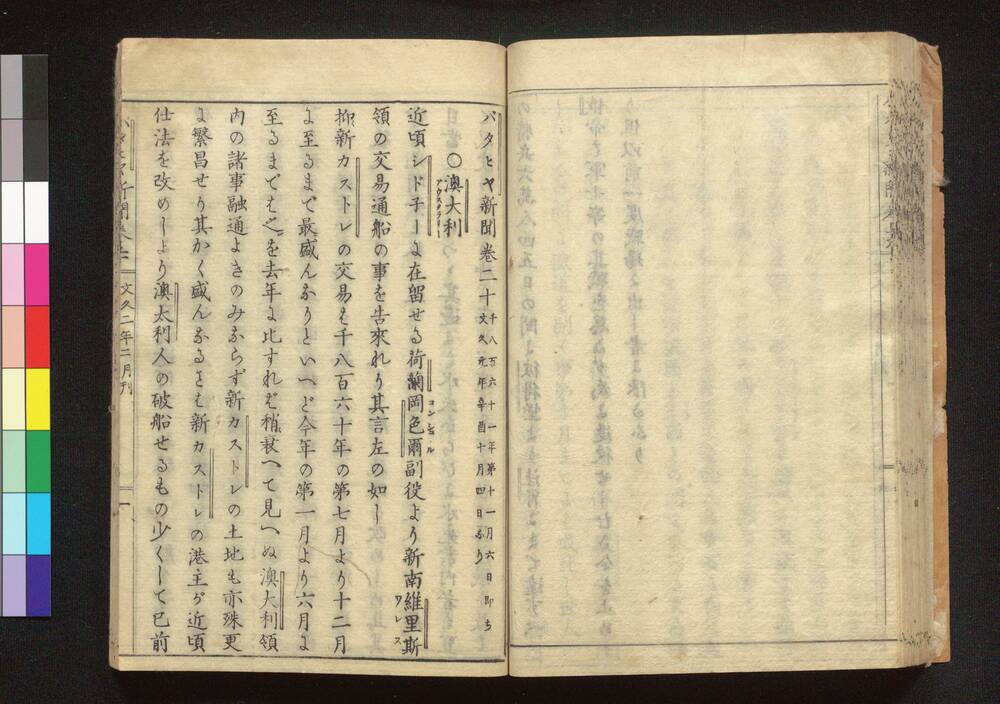 バタヒヤ新聞巻二十 千八百六十一年第十一月六日即ち文久元年辛酉十月四日なり
〇澳大利 アウスタラリー
近頃シド子ーに在留せる荷蘭岡色爾副役より新南維里斯 コンシュル ワレス
領の交易通船の事を告來れり其言左の如し
抑新カストレの交易は千八百六十年の第七月より十二月
に至るまで最盛んなりといへど今年の第一月より六月に
至るまではこを去年に比すれば稍衰へて見へぬ澳大利領
内の諸事融通よきのみならず新カストレの土地も亦殊更
に繁昌せり其かく盛んなるは新カストレの港主が近頃
仕法を改めしより澳太利人の破船せるもの少くして已前
バタヒヤ新聞巻二十 文久二年二月刊 一